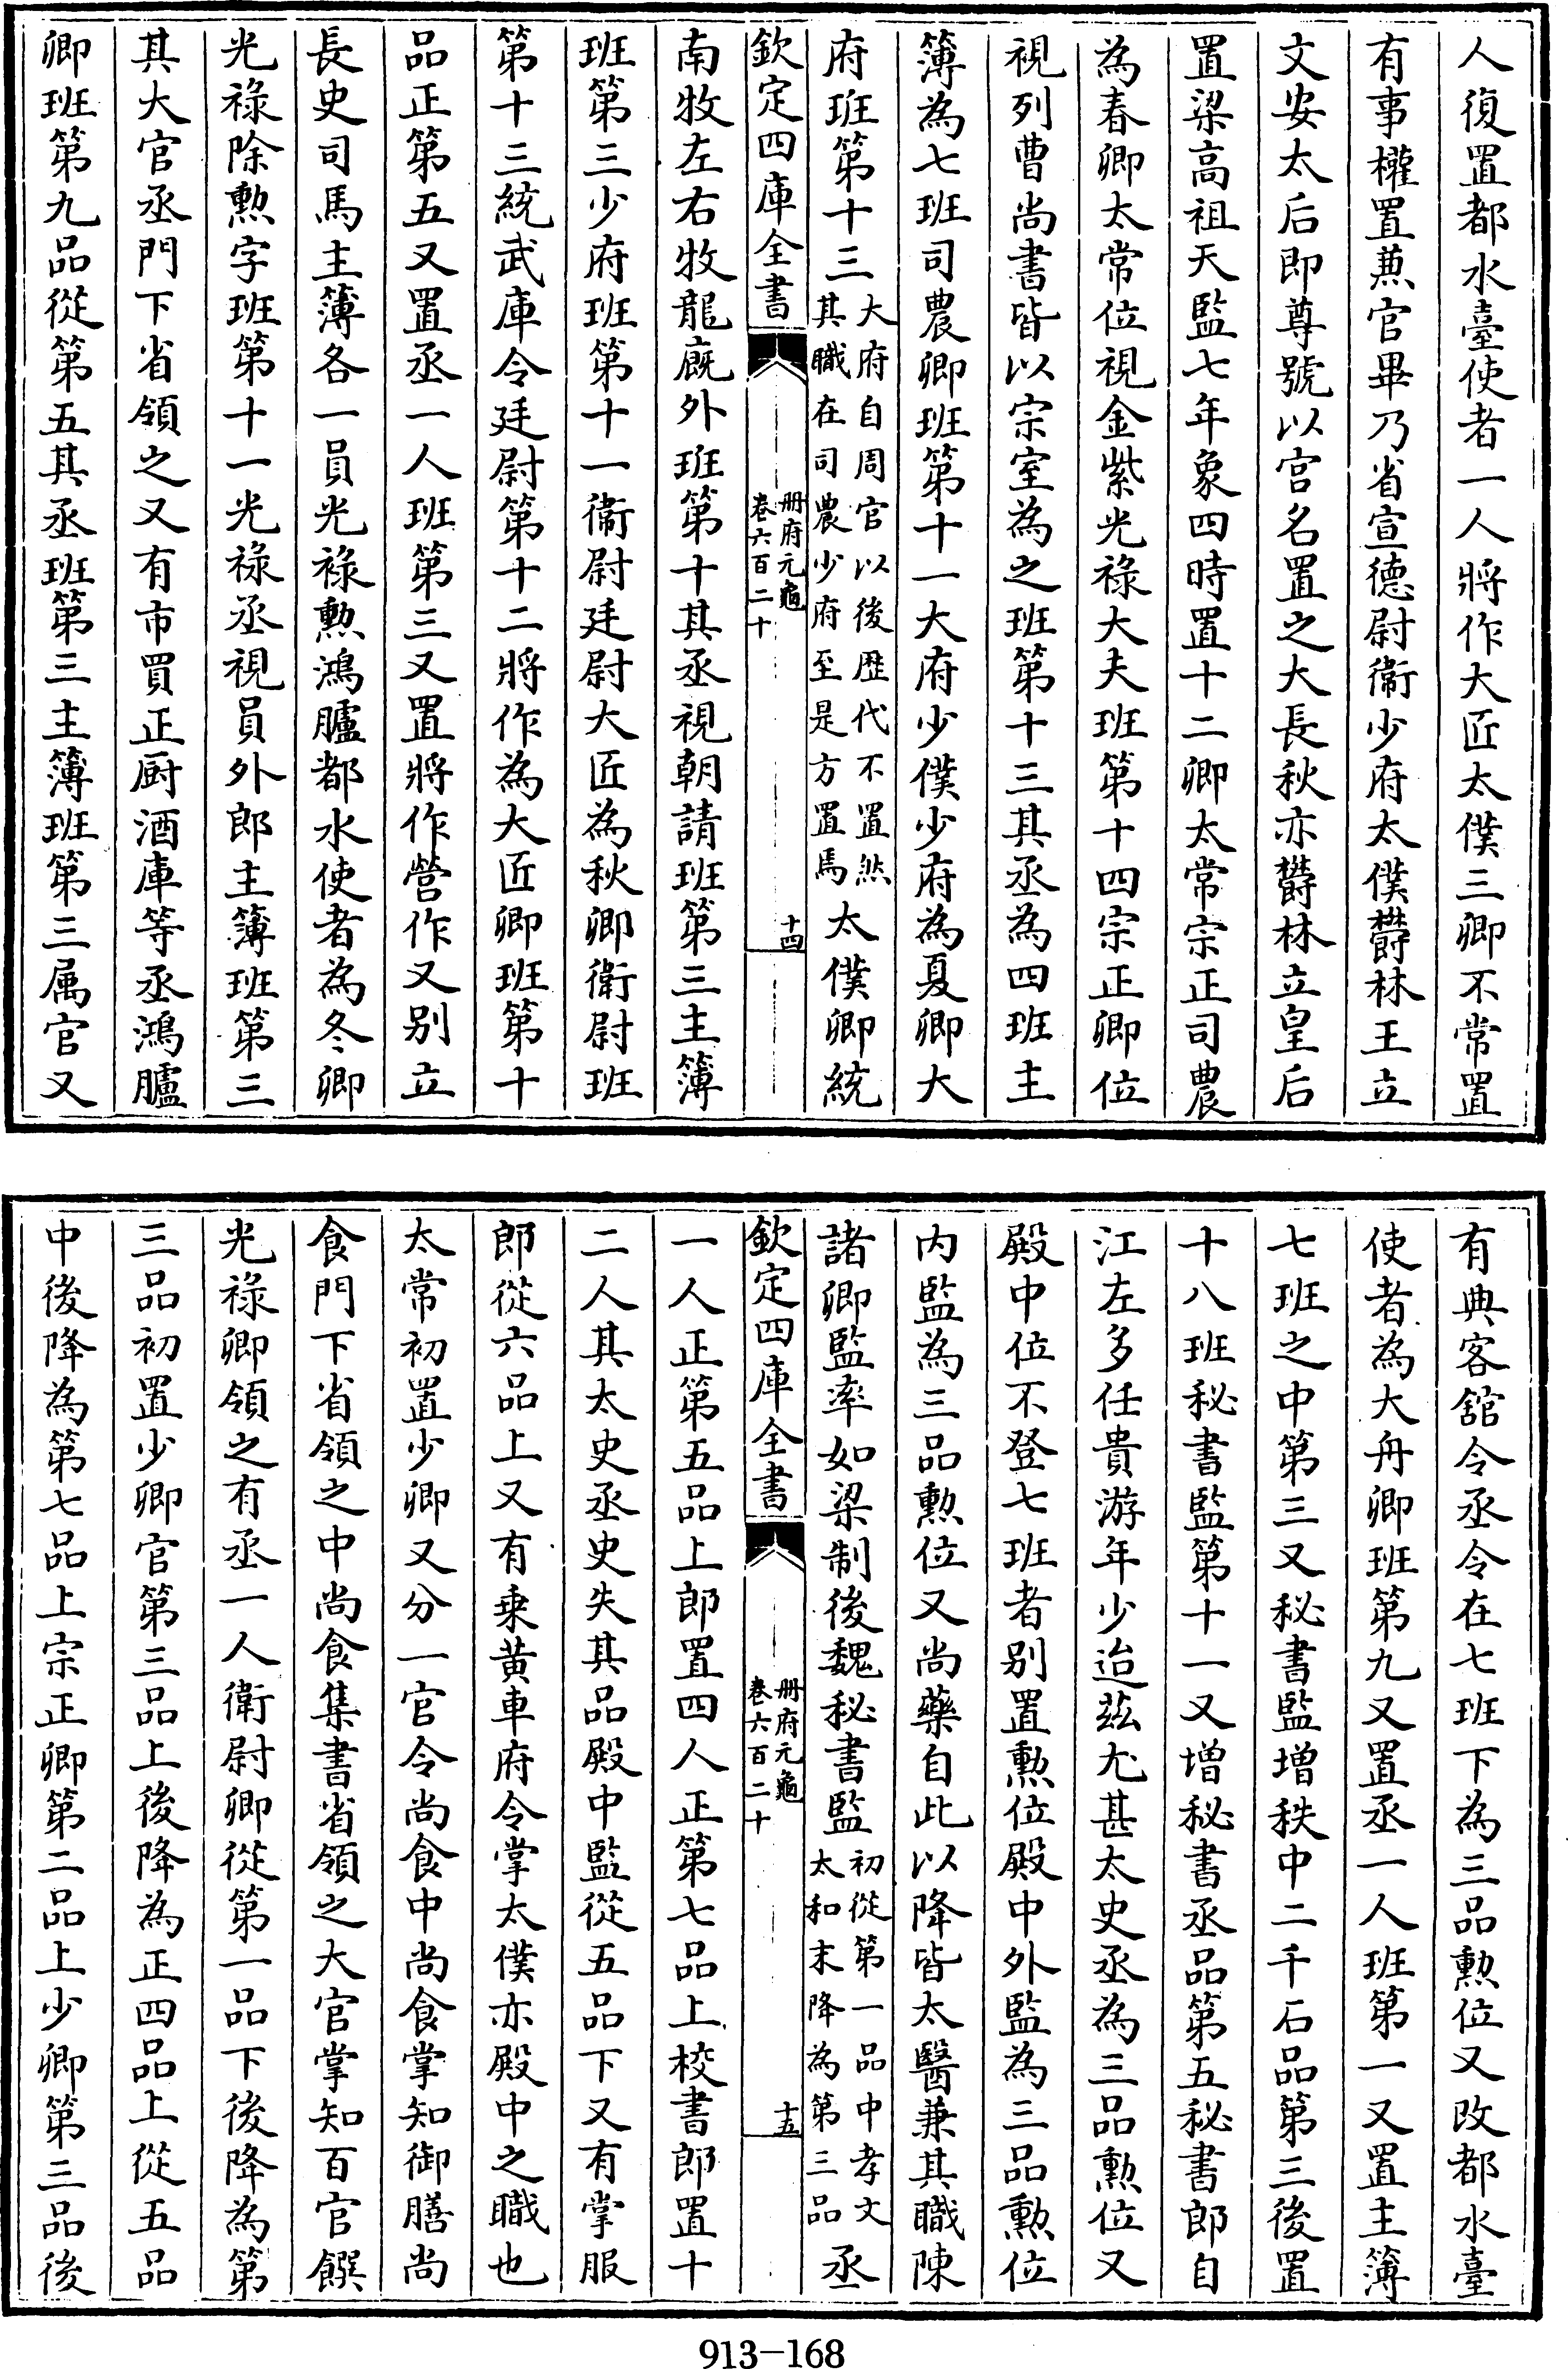 人復置都水臺使者一人將作大匠太僕三卿不常置
有事權置兼官畢乃省宣德尉衞少府太僕欝林王立
文安太后即尊號以宫名置之大長秋亦欝林立皇后
置梁高祖天監七年象四時置十二卿太常宗正司農
為春卿太常位視金紫光禄大夫班第十四宗正卿位
視列曹尚書皆以宗室為之班第十三其丞為四班主
簿為七班司農卿班第十一大府少僕少府為夏卿大
府班第十三大府自周官以後歴代不置然
其職在司農少府至是方置焉太僕卿統
欽定四庫全書
册府元龜
卷六百二十
十四
南牧左右牧龍廐外班第十其丞視朝請班第三主簿
班第三少府班第十一衞尉廷尉大匠為秋卿衛尉班
第十三統武庫令廷尉第十二將作為大匠卿班第十
品正第五又置丞一人班第三又置將作營作又别立
長史司馬主簿各一員光禄勲鴻臚都水使者為冬卿
光禄除勲字班第十一光禄丞視員外郎主簿班第三
其大官丞門下省領之又有市買正厨酒庫等丞鴻臚
卿班第九品從第五其丞班第三主簿班第三属官又
有典客舘令丞令在七班下為三品勲位又改都水臺
使者為大舟卿班第九又置丞一人班第一又置主簿
七班之中第三又秘書監增秩中二千石品第三後置
十八班秘書監第十一又增秘書丞品第五秘書郎自
江左多任貴游年少迨兹尤甚太史丞為三品勲位又
殿中位不登七班者别置勲位殿中外監為三品勲位
内監為三品勲位又尚藥自此以降皆太醫兼其職陳
諸卿監率如梁制後魏秘書監初從第一品中孝文
太和末降為第三品丞
欽定四庫全書
册府元龜
卷六百二十
十五
一人正第五品上郎置四人正第七品上校書郎置十
二人其太史丞史失其品殿中監從五品下又有掌服
郎從六品上又有乗黄車府令掌太僕亦殿中之職也
太常初置少卿又分一官令尚食中尚食掌知御膳尚
食門下省領之中尚食集書省領之大官掌知百官饌
光禄卿領之有丞一人衛尉卿從第一品下後降為第
三品初置少卿官第三品上後降為正四品上從五品
中後降為第七品上宗正卿第二品上少卿第三品後
913-168